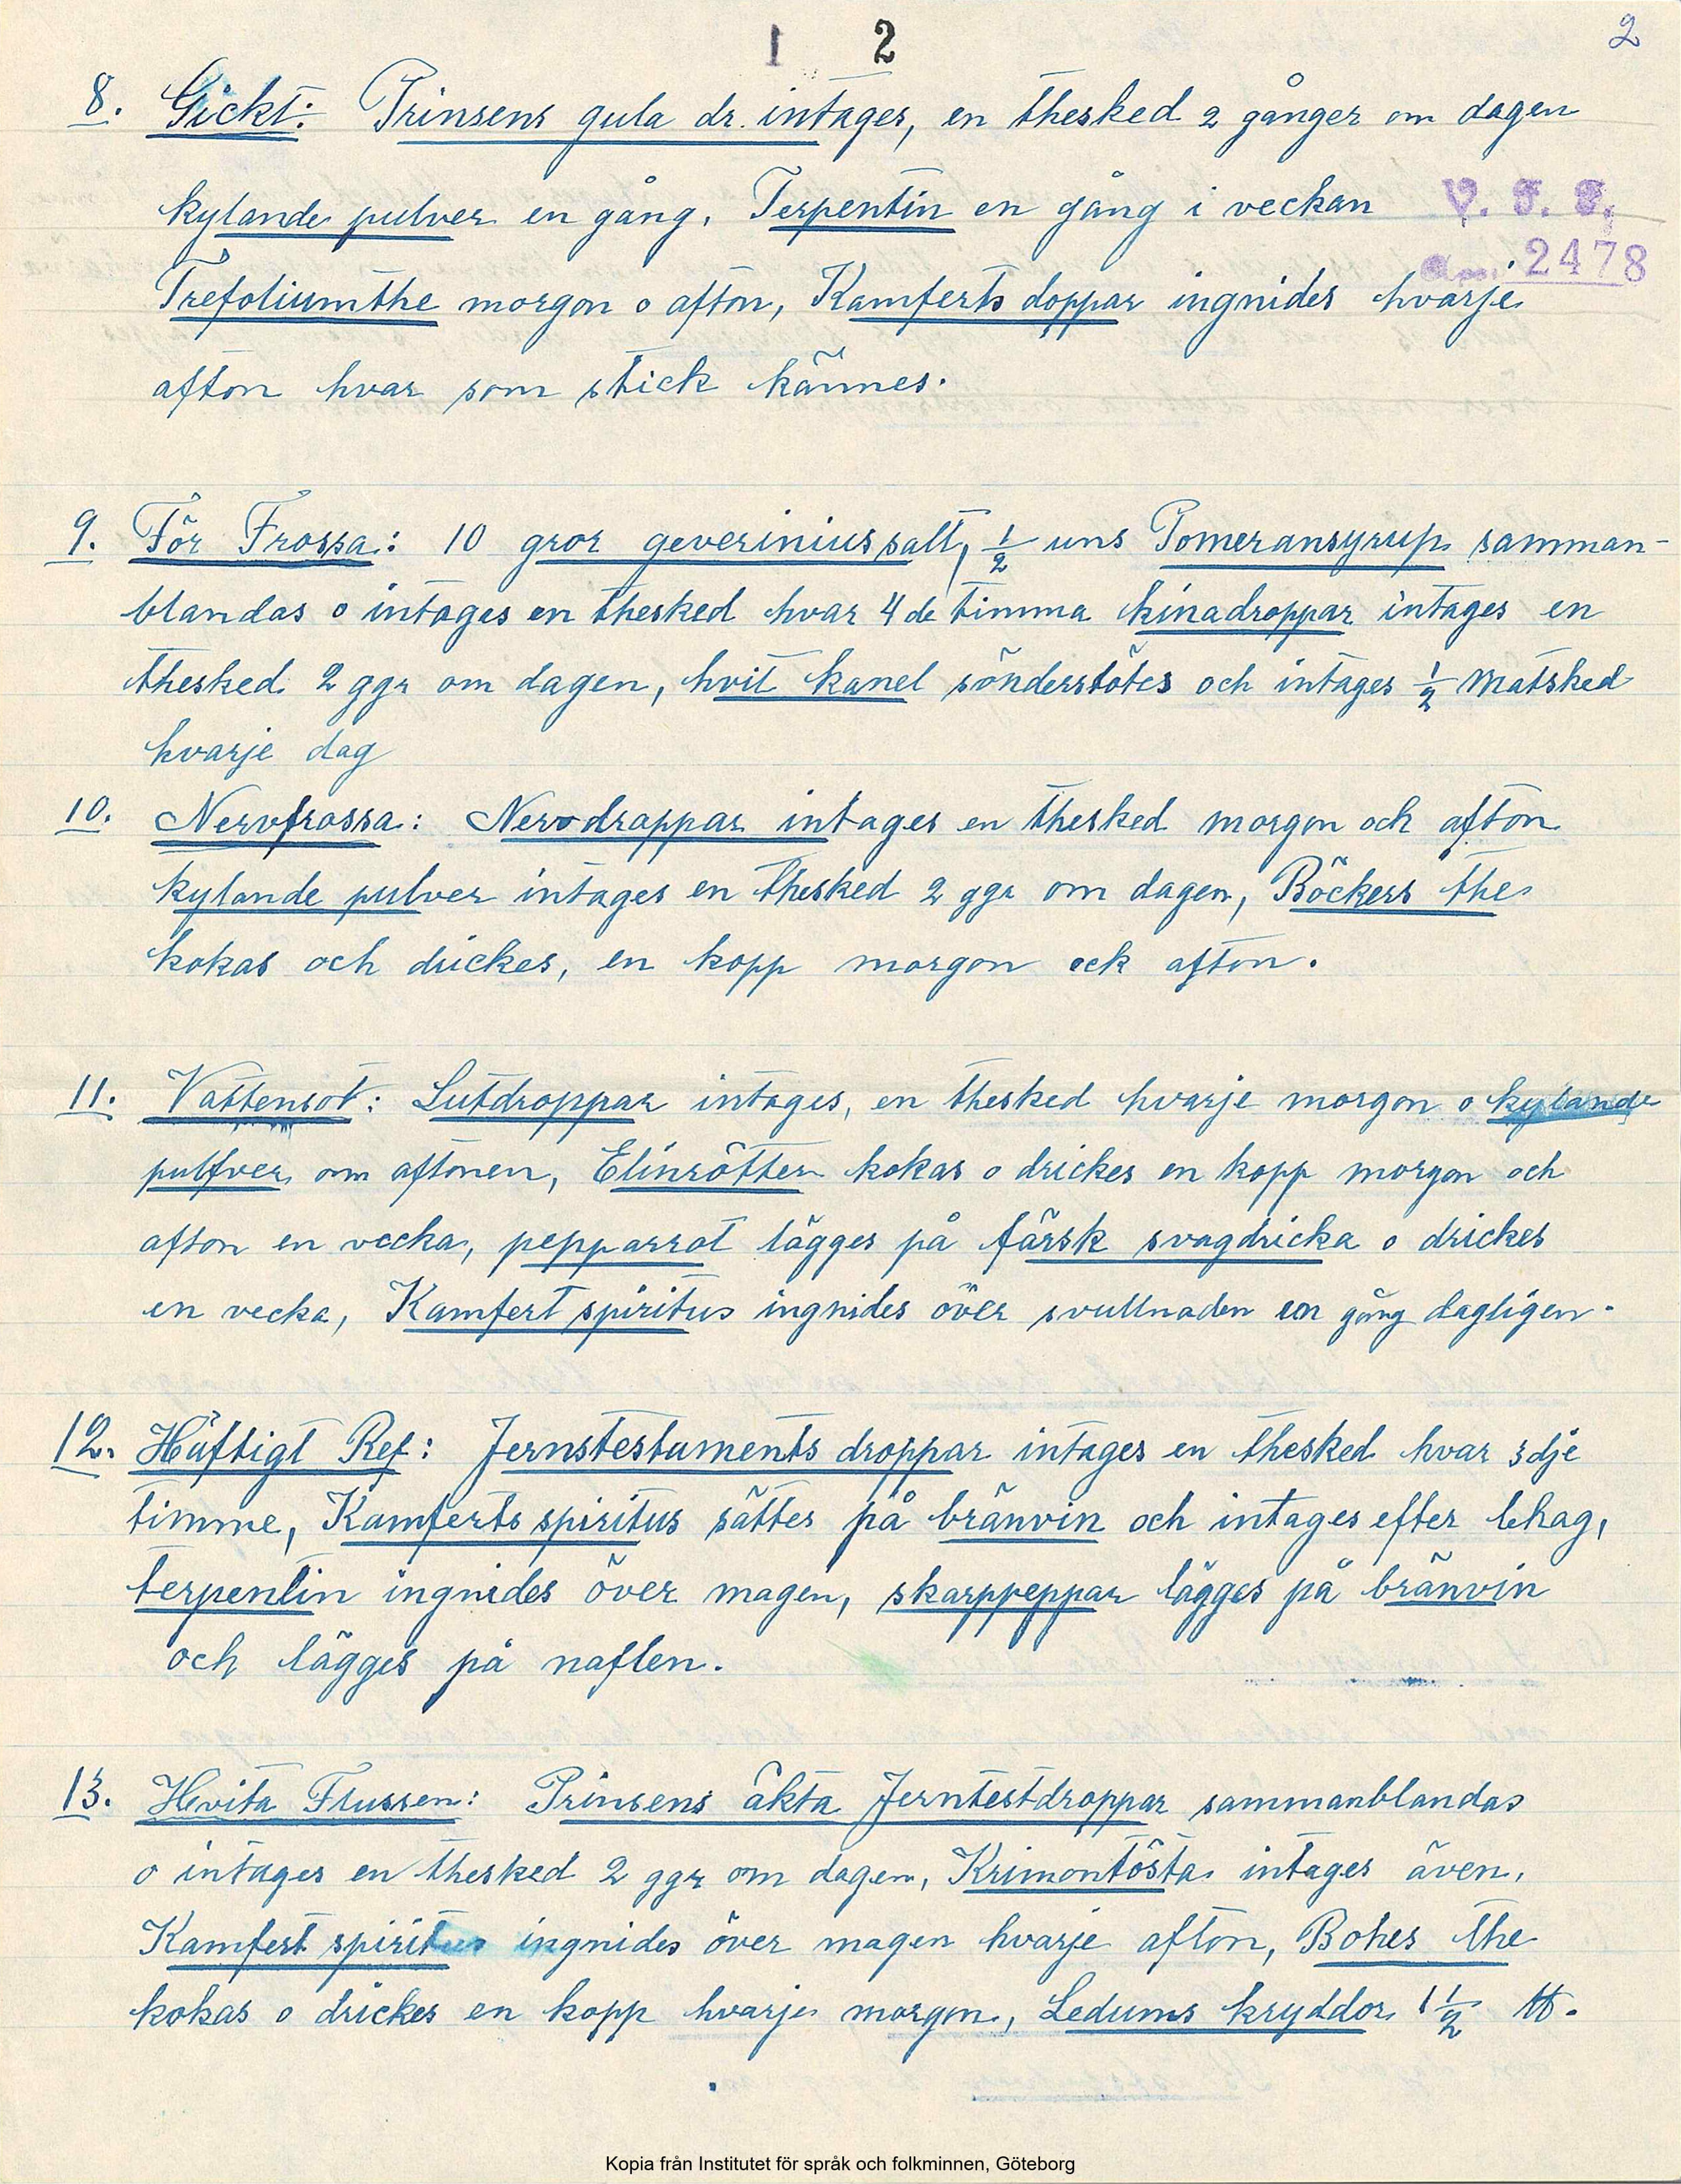 1 2 2
8. Gickt: Prinsens gula dr. intages, en thesked 2 gånger om dagen
kylande pulver en gång, Terpentin en gång i veckan
V. F. F.
2478
Trefoliumthe morgon o afton, Kamferts doppar ingnides hvarje
afton hvar som stick kännes.
9. För Frossa: 10 gror geverinius salt, 1/2 uns Pomeransyrup samman-
blandas o intages en thesked hvar 4 de timma kinadroppar intages en
thesked 2 ggr om dagen, hvit kanel sönderstötes och intages 1/2 matsked
hvarje dag
10. Nervfrossa: Nervdroppar intages en thesked morgon och afton
kylande pulver intages en thesked 2 ggr om dagen, Böckers the
kokas och drickes, en kopp morgon ock afton.
11. Vattensot: Lutdroppar intages, en thesked hvarje morgon o kylande
pulfver om aftonen, Elinrötter kokas o drickes en kopp morgon och
afton en vecka, pepparrot lägges på färsk svagdricka o drickes
en vecka, Kamfert spiritus ingnides över svullnaden en gång dagligen.
12. Häftigt Ref: Jernstestuments droppar intages en thesked hvar 3dje
timme, Kamferts spiritus sättes på bränvin och intages efter behag,
terpentin ingnides över magen, skarppeppar lägges på bränvin
och lägges på naflen.
13. Hvita Flussen: Prinsens äkta Jerntestdroppar sammanblandas
o intages en thesked 2 ggr om dagen, Krimontösta intages även,
Kamfert spiritus ingnides över magen hvarje afton, Bohes the
kokas o drickes en kopp hvarje morgon, Ledums kryddor 1 1/2 ℔.
Kopia från Institutet för språk och folkminnen, Göteborg